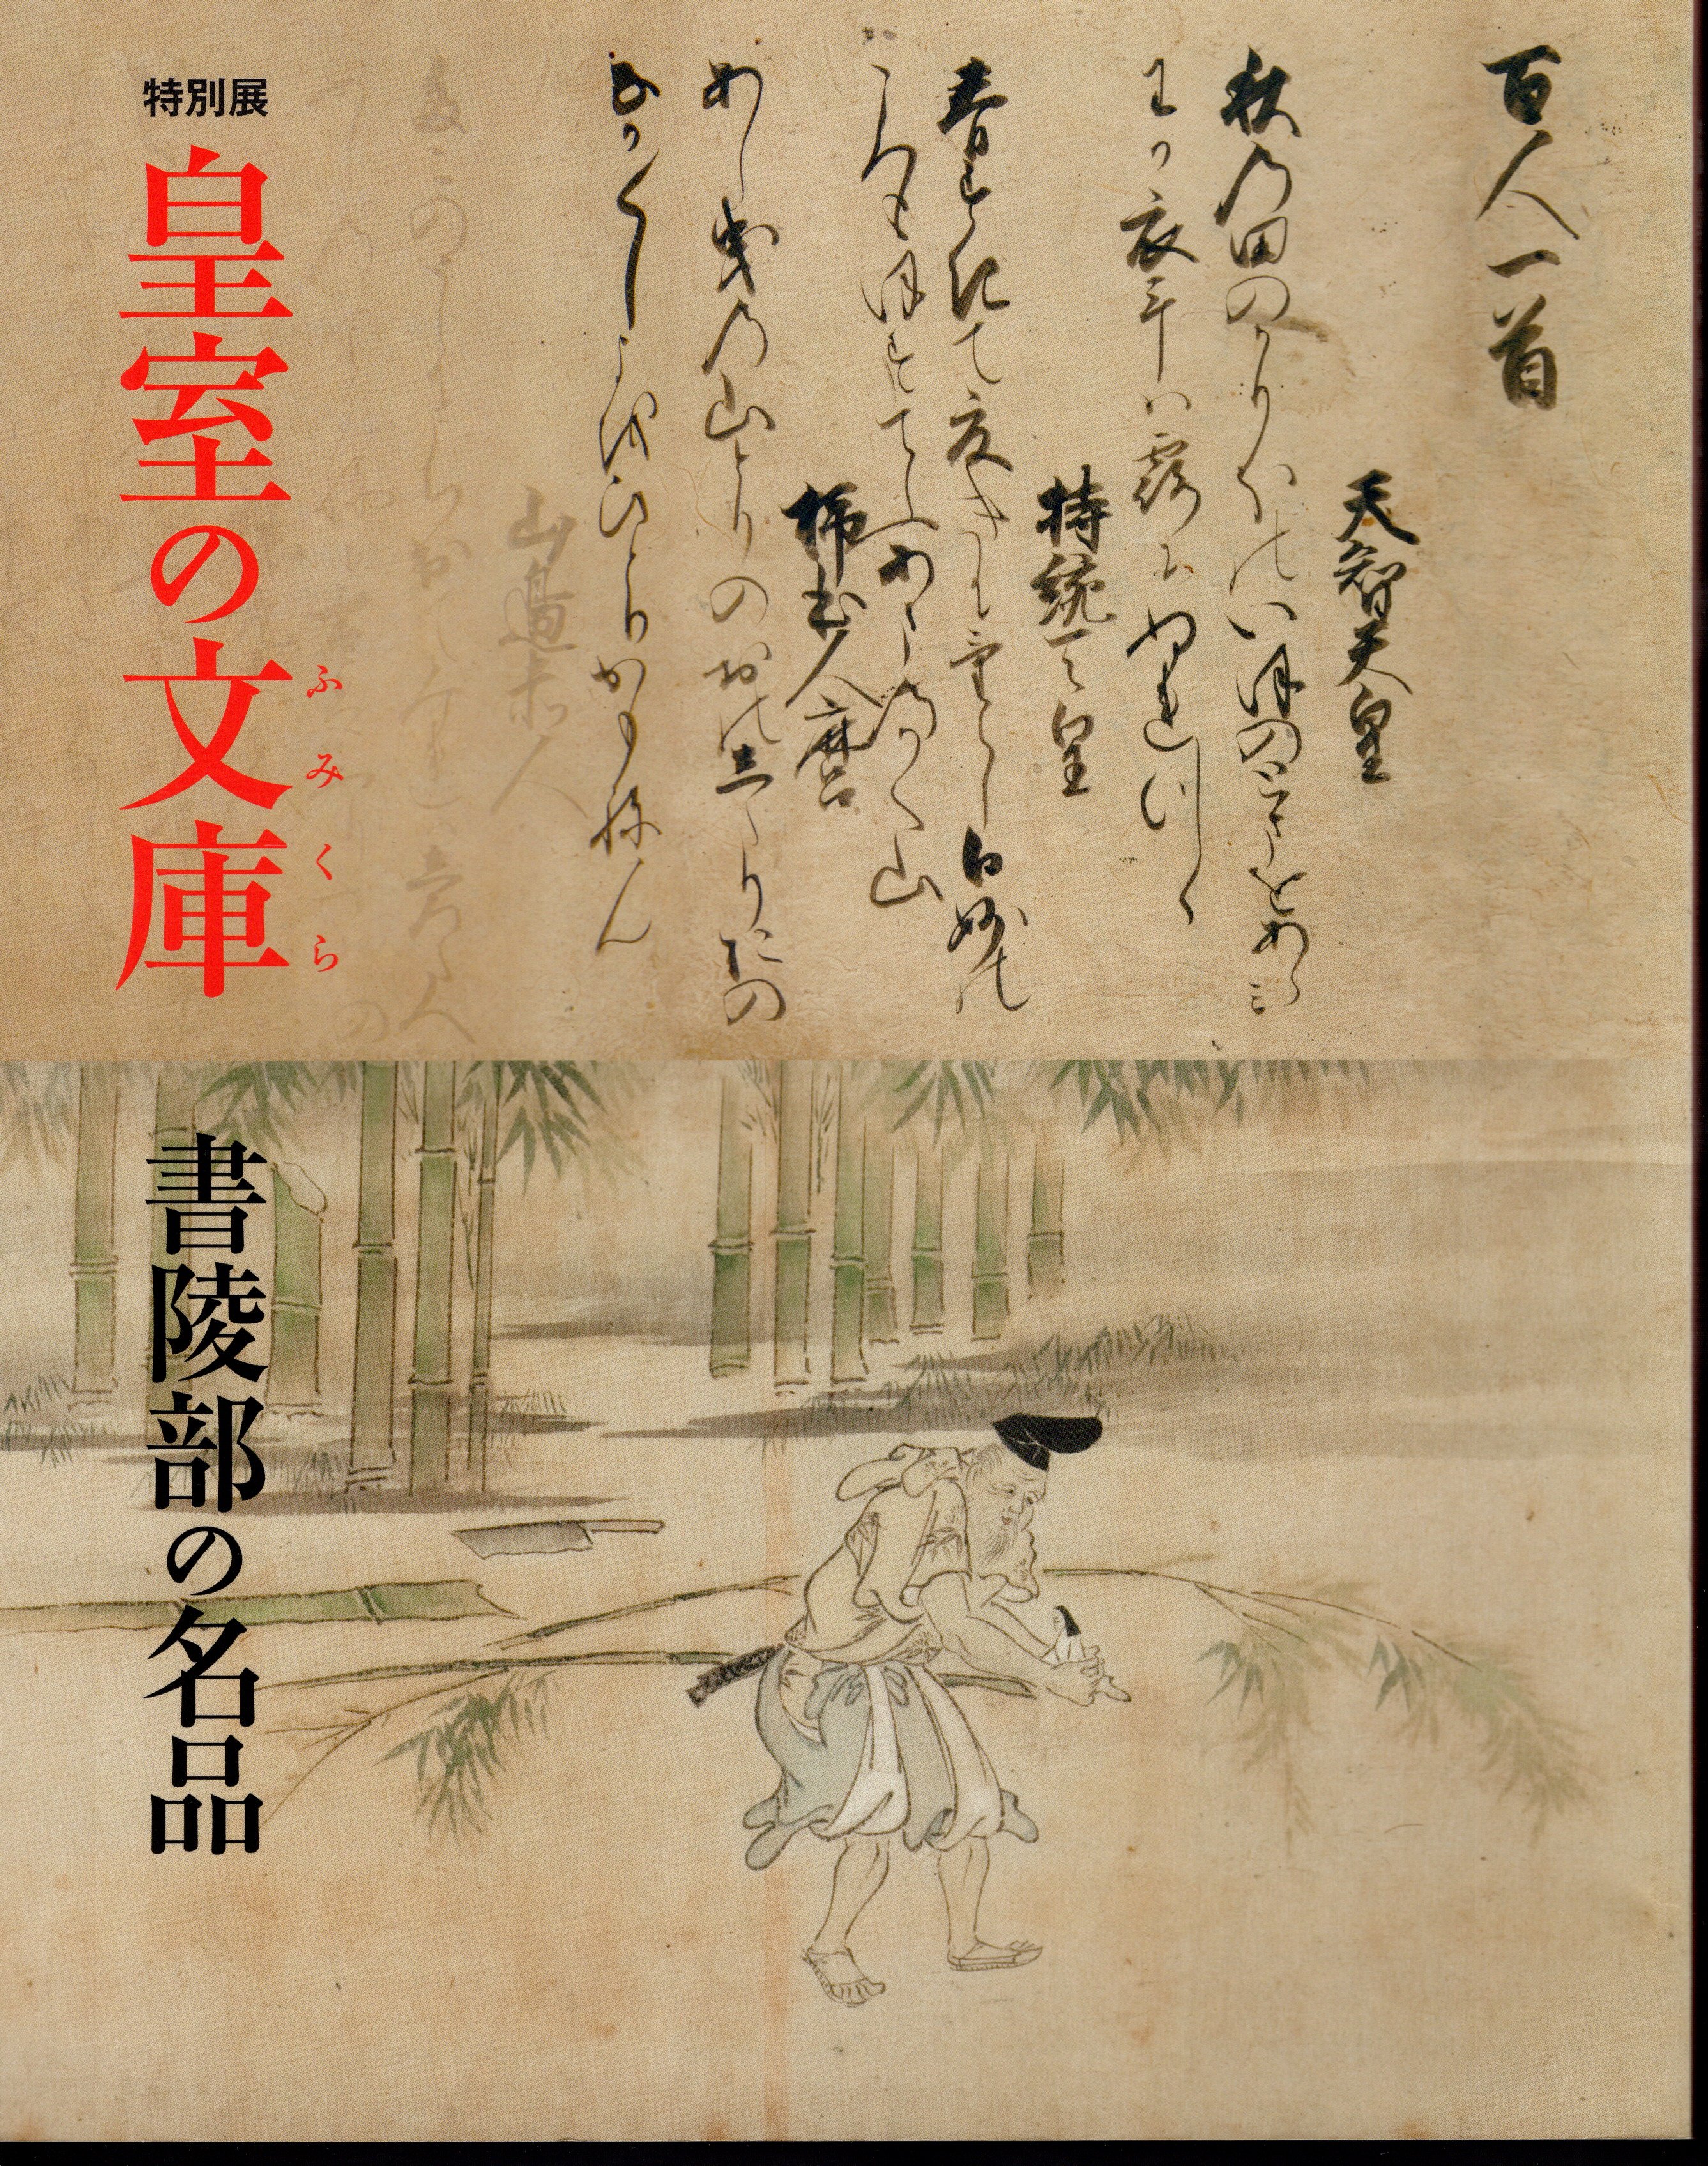 特別展
皇室の文庫
ふみくら
書陵部の名品
百人一首
天智天皇
秋乃田のかりほのいほのとまをあらみ
わか衣手ハ露にぬれつゝ
持統天皇
春すきて夏きにけらし白妙の
ころもほすてふあまのかく山
柿本人麿
あし曳乃山とりのおのしたりおの
なか〱しよをひとりかもねん
山邊赤人